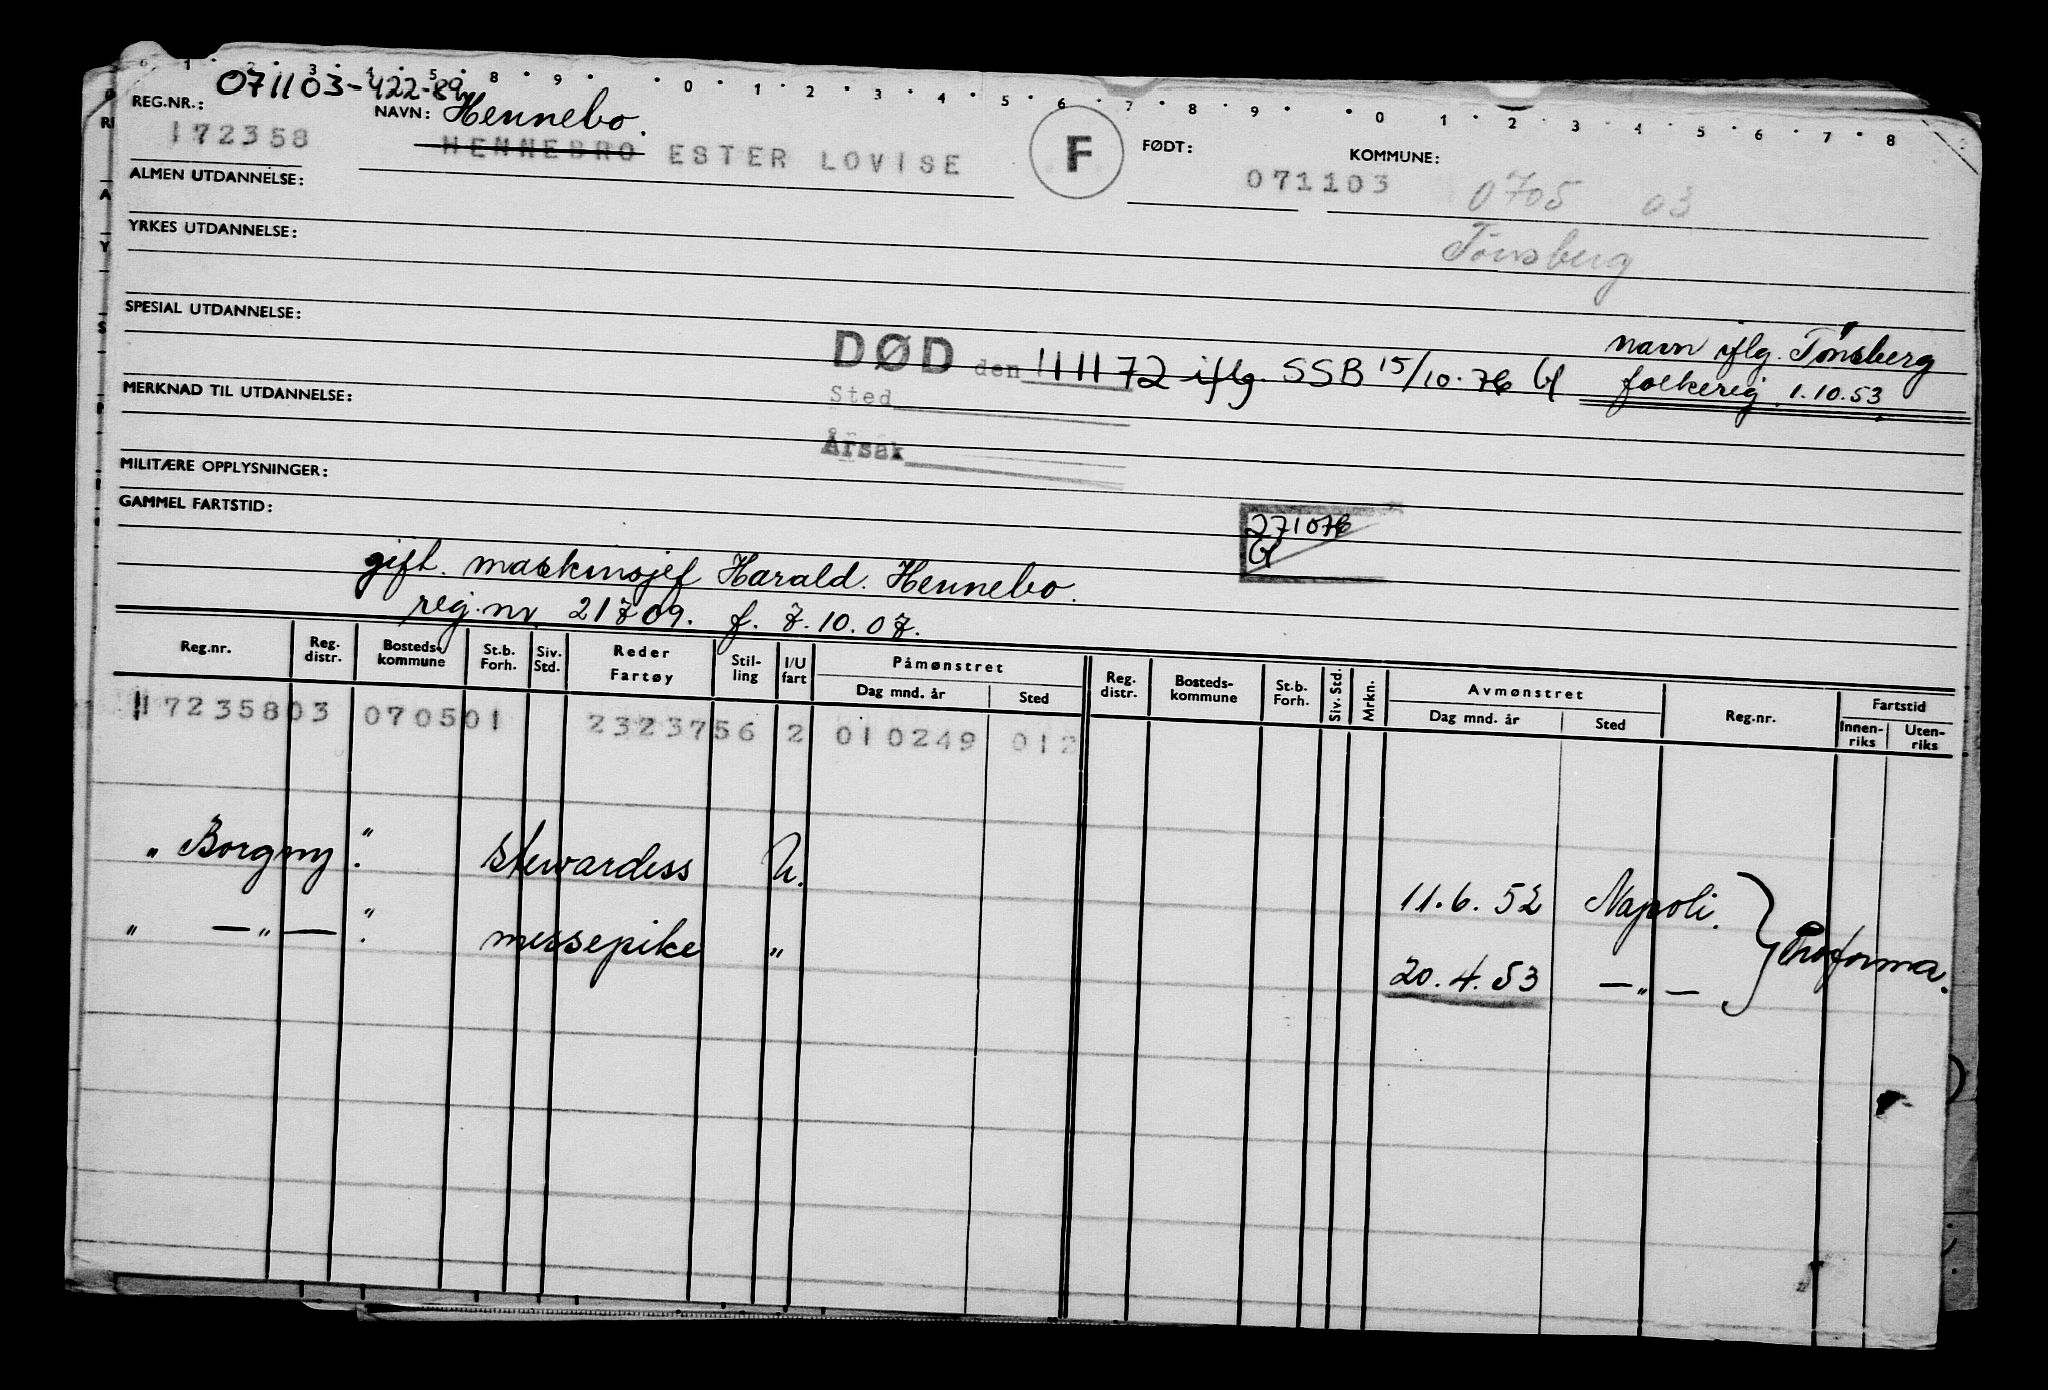 0 1 2 3 4 5 8 9 0 1 2 3 4 5 6 7 8 9 0 1 2 3 4 5 6 7 8
071103-422-89
REG.NR.: 172358
NAVN: Hennebo.
HENNEBRO ESTER LOVISE
F
FØDT: 071103
KOMMUNE: 0705 03
Tønsberg
ALMEN UTDANNELSE:
YRKES UTDANNELSE:
SPESIAL UTDANNELSE:
DØD den 111172 iflg. SSB 15/10.76
navn iflg. Tønsberg
folkereg. 1.10.53.
Sted
MERKNAD TIL UTDANNELSE:
Årsak
MILITÆRE OPPLYSNINGER:
GAMMEL FARTSTID:
271076
gift. maskinsjef Harald. Hennebo.
reg.nr. 21709. f. 7.10.07.
Reg.nr. Reg. distr. Bosteds-kommune St.b. Forh. Siv. Std. Reder Fartøy Stil-ling I/U fart Påmønstret Dag mnd. år Sted Reg. distr. Bosteds-kommune St.b. Forh. Siv. Std. Mrkn. Avmønstret Dag mnd. år Sted Reg.nr. Fartstid Innen-riks Uten-riks
17235803 070501 2323756 2 010249 012
" Borgny " . stewardess U. 11.6.52 Napoli.
" — " — " . messepike " 20.4.53 — " —
} Proforma.